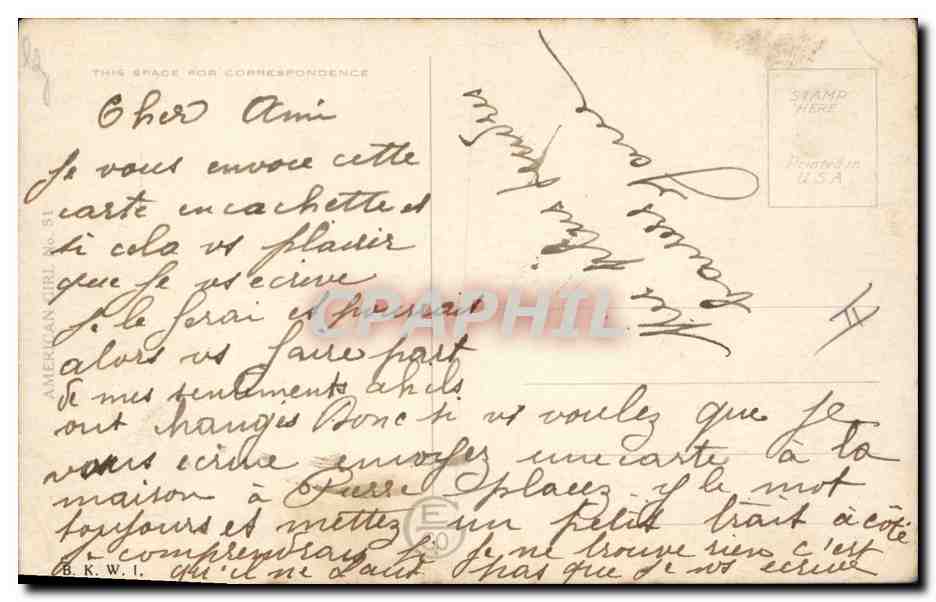 THIS SPACE FOR CORRESPONDENCE
STAMP
HERE
Printed in
U.S.A
AMERICAN GIRL No. 51
Cher Ami
Je vous envoie cette
carte en cachette et
si cela vs plaisir
que Je vs ecrive
Je le ferai et pourrait
alors vs faire part
de mes sentiments ah ils
ont changes Donc si vs voulez que Je
vous ecrive envoyez une carte à la
maison à Pierre placez y le mot
toujours et mettez un petit trait à côté
Je comprendrai si Je ne trouve rien c'est
qu'il ne faut pas que Je vs ecrive
Mille baisers
Très tendres
CPARHIL
B. K. W. I.